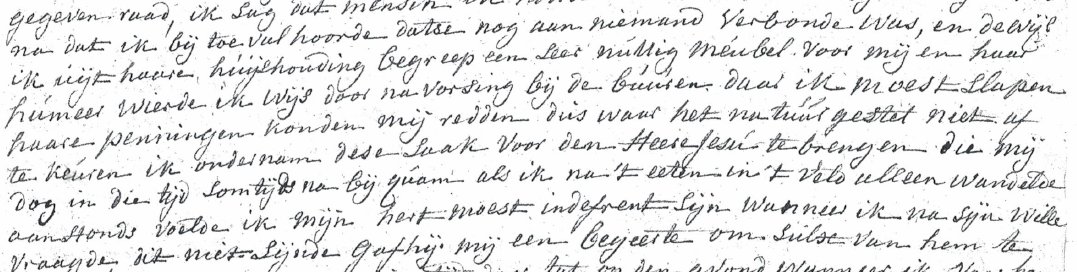 gegeven raad, ik sag dat mensin ik
na dat ik bij toe val hoorde datse nog aan niemand verbonde was, en dewijl
ik uijt haare huijshouding begreep een seer nuttig meubel voor mij en haar
humeer wierde ik wijs door na vorsing bij de buuren daar ik moest slapen
haare penningen konden mij redden dus waar het natuur gestel niet af
te keuren ik ondernam dese saak voor den Heere Jesu te brengen die mij
dog in die tijd somtijds na bij quam als ik na 't eeten in 't veld alleen wandelde
aanstonds voelde ik mijn hert moest indefrent sijn wanneer ik na sijn wille
vraagde, dit niet sijnde gaf hij mij een begeerte om sulx van hem te
tot op den avond wanneer ik